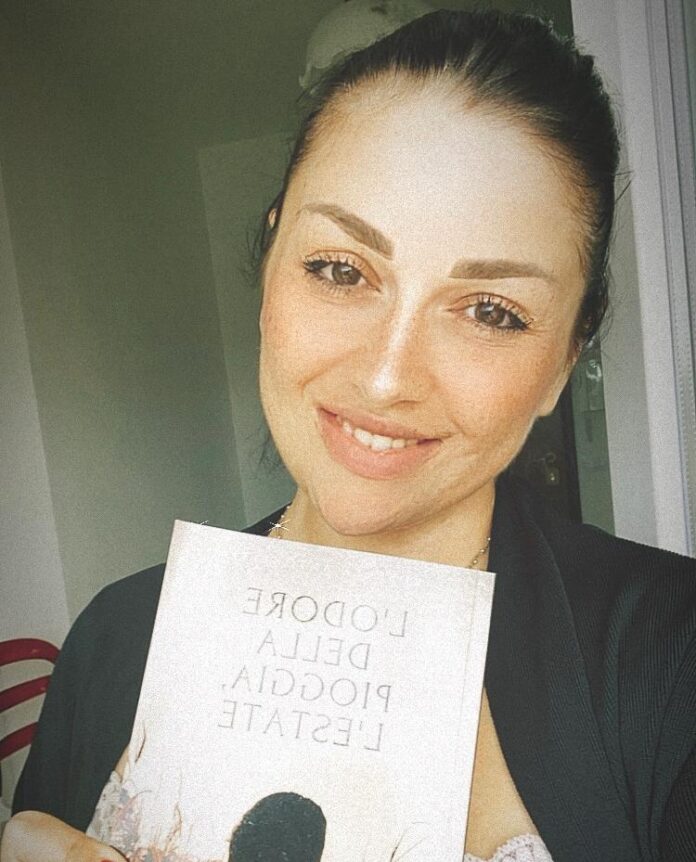 L'ODORE
DELLA
PIOGGIA,
L'ESTATE